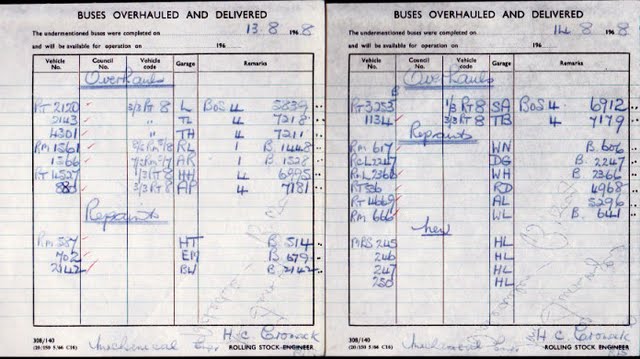 BUSES OVERHAULED AND DELIVERED
The undermentioned buses were completed on 13.8 1968
and will be available for operation on 196
Vehicle No. Council No. Vehicle code Garage Remarks
Overhauls
RT 2120 3/3 RT 8 L BOS 4 5839
2143 " TL 4 7218
4301 " TH 4 7211
RM 1561 RL 1 B. 1448
1566 AR 1 B 1528
RT 4527 1/3 RT 8 HH 4 6995
880 3/3 RT 8 AP 4 7181
Repaints
RM 587 HT B. 514
702 EM B 679
2142 BW B. 2142
308/140
(20/150 5/66 C16)
Mechanical Engr H C Cronack
ROLLING STOCK ENGINEER
BUSES OVERHAULED AND DELIVERED
The undermentioned buses were completed on 14.8 1968
and will be available for operation on 196
Vehicle No. Council No. Vehicle code Garage Remarks
Overhauls
RT 3253 1/3 RT 8 SA BOS 4. 6912
1134 3/3 RT 8 TB 4 7179
Repaints
RM 617 WN B 606
RCL 2247 DG B. 2247
RML 2366 WH B 2366
RT 526 RD 4968
RT 4669 AL 5296
RM 666 WL B. 641
New
MBS 245 HL
246 HL
247 HL
250 HL
308/140
(20/150 5/66 C16)
Mechanical Engr H C Cronack
ROLLING STOCK ENGINEER